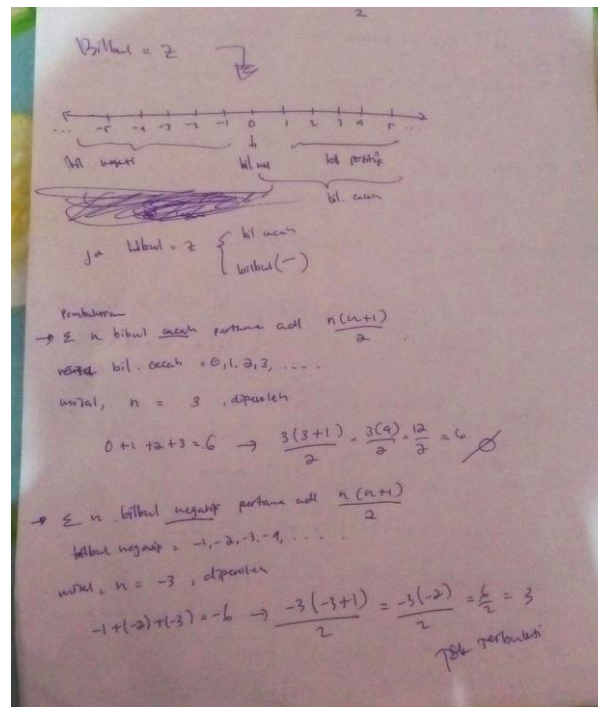 2
Bilbul = Z
... -5 -4 -3 -2 -1 0 1 2 3 4 5 ...
bil negati bil nol bil positif
bil. cacah
ja bilbul = Z { bil cacah
bilbul (-)
Pembuktian
→ Σ n bilbul cacah pertama adl n(n+1)/2
bil. cacah = 0, 1, 2, 3, ....
misal, n = 3 , diperoleh
0+1+2+3 = 6 → 3(3+1)/2 = 3(4)/2 = 12/2 = 6
→ Σ n bilbul negatif pertama adl n(n+1)/2
bilbul negatif = -1, -2, -3, -4, ....
misal, n = -3 , diperoleh
-1+(-2)+(-3) = -6 → -3(-3+1)/2 = -3(-2)/2 = 6/2 = 3
Tdk terbukti